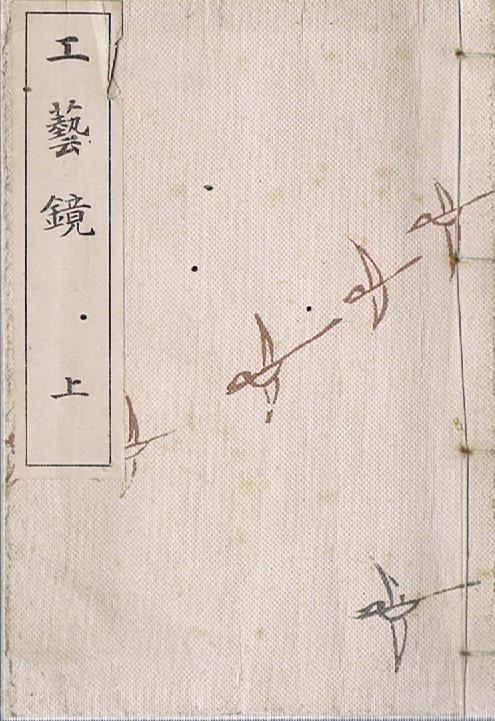 工藝鏡 上